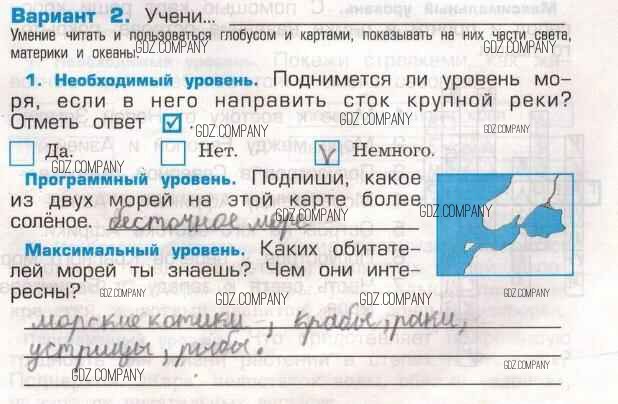 Вариант 2. Учени...
Умение читать и пользоваться глобусом и картами, показывать на них части света,
материки и океаны. GDZ.COMPANY GDZ.COMPANY
1. Необходимый уровень. Поднимется ли уровень мо-
ря, если в него направить сток крупной реки?
Отметь ответ ☑. GDZ.COMPANY GDZ.COMPANY
Да. Нет. V Немного.
GDZ.COMPANY
Программный уровень. Подпиши, какое
из двух морей на этой карте более
солёное. бесточное море GDZ.COMPANY GDZ.COMPANY
Максимальный уровень. Каких обитате-
лей морей ты знаешь? Чем они инте-
ресны? GDZ.COMPANY GDZ.COMPANY GDZ.COMPANY GDZ.COMPANY
морские котики, крабы, раки,
устрицы, рыбы. GDZ.COMPANY
GDZ.COMPANY